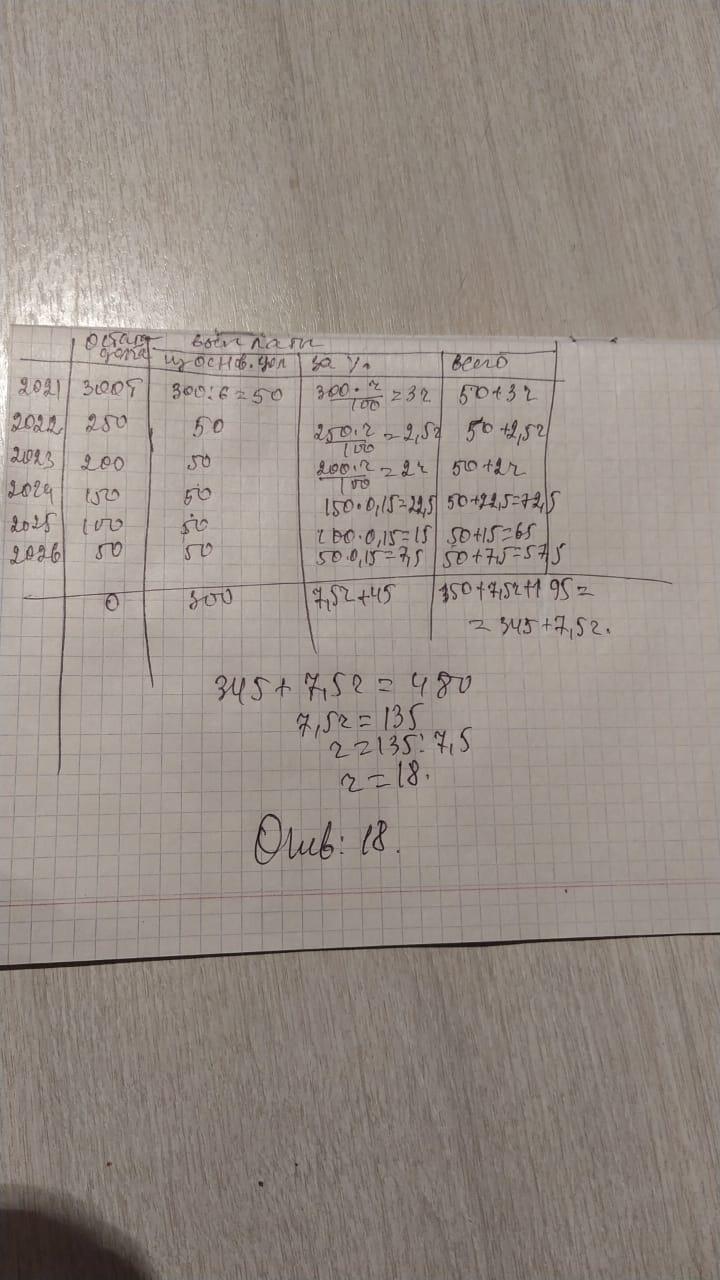 остат долга выплаты
из основ. дол за % всего
2021 300т 300:6=50 300·r/100=3r 50+3r
2022 250 50 250·r/100=2,5r 50+2,5r
2023 200 50 200·r/100=2r 50+2r
2024 150 50 150·0,15=22,5 50+22,5=72,5
2025 100 50 100·0,15=15 50+15=65
2026 50 50 50·0,15=7,5 50+7,5=57,5
0 300 7,5r+45 150+7,5r+195=
=345+7,5r.
345+7,5r=480
7,5r=135
r=135:7,5
r=18.
Отв: 18.